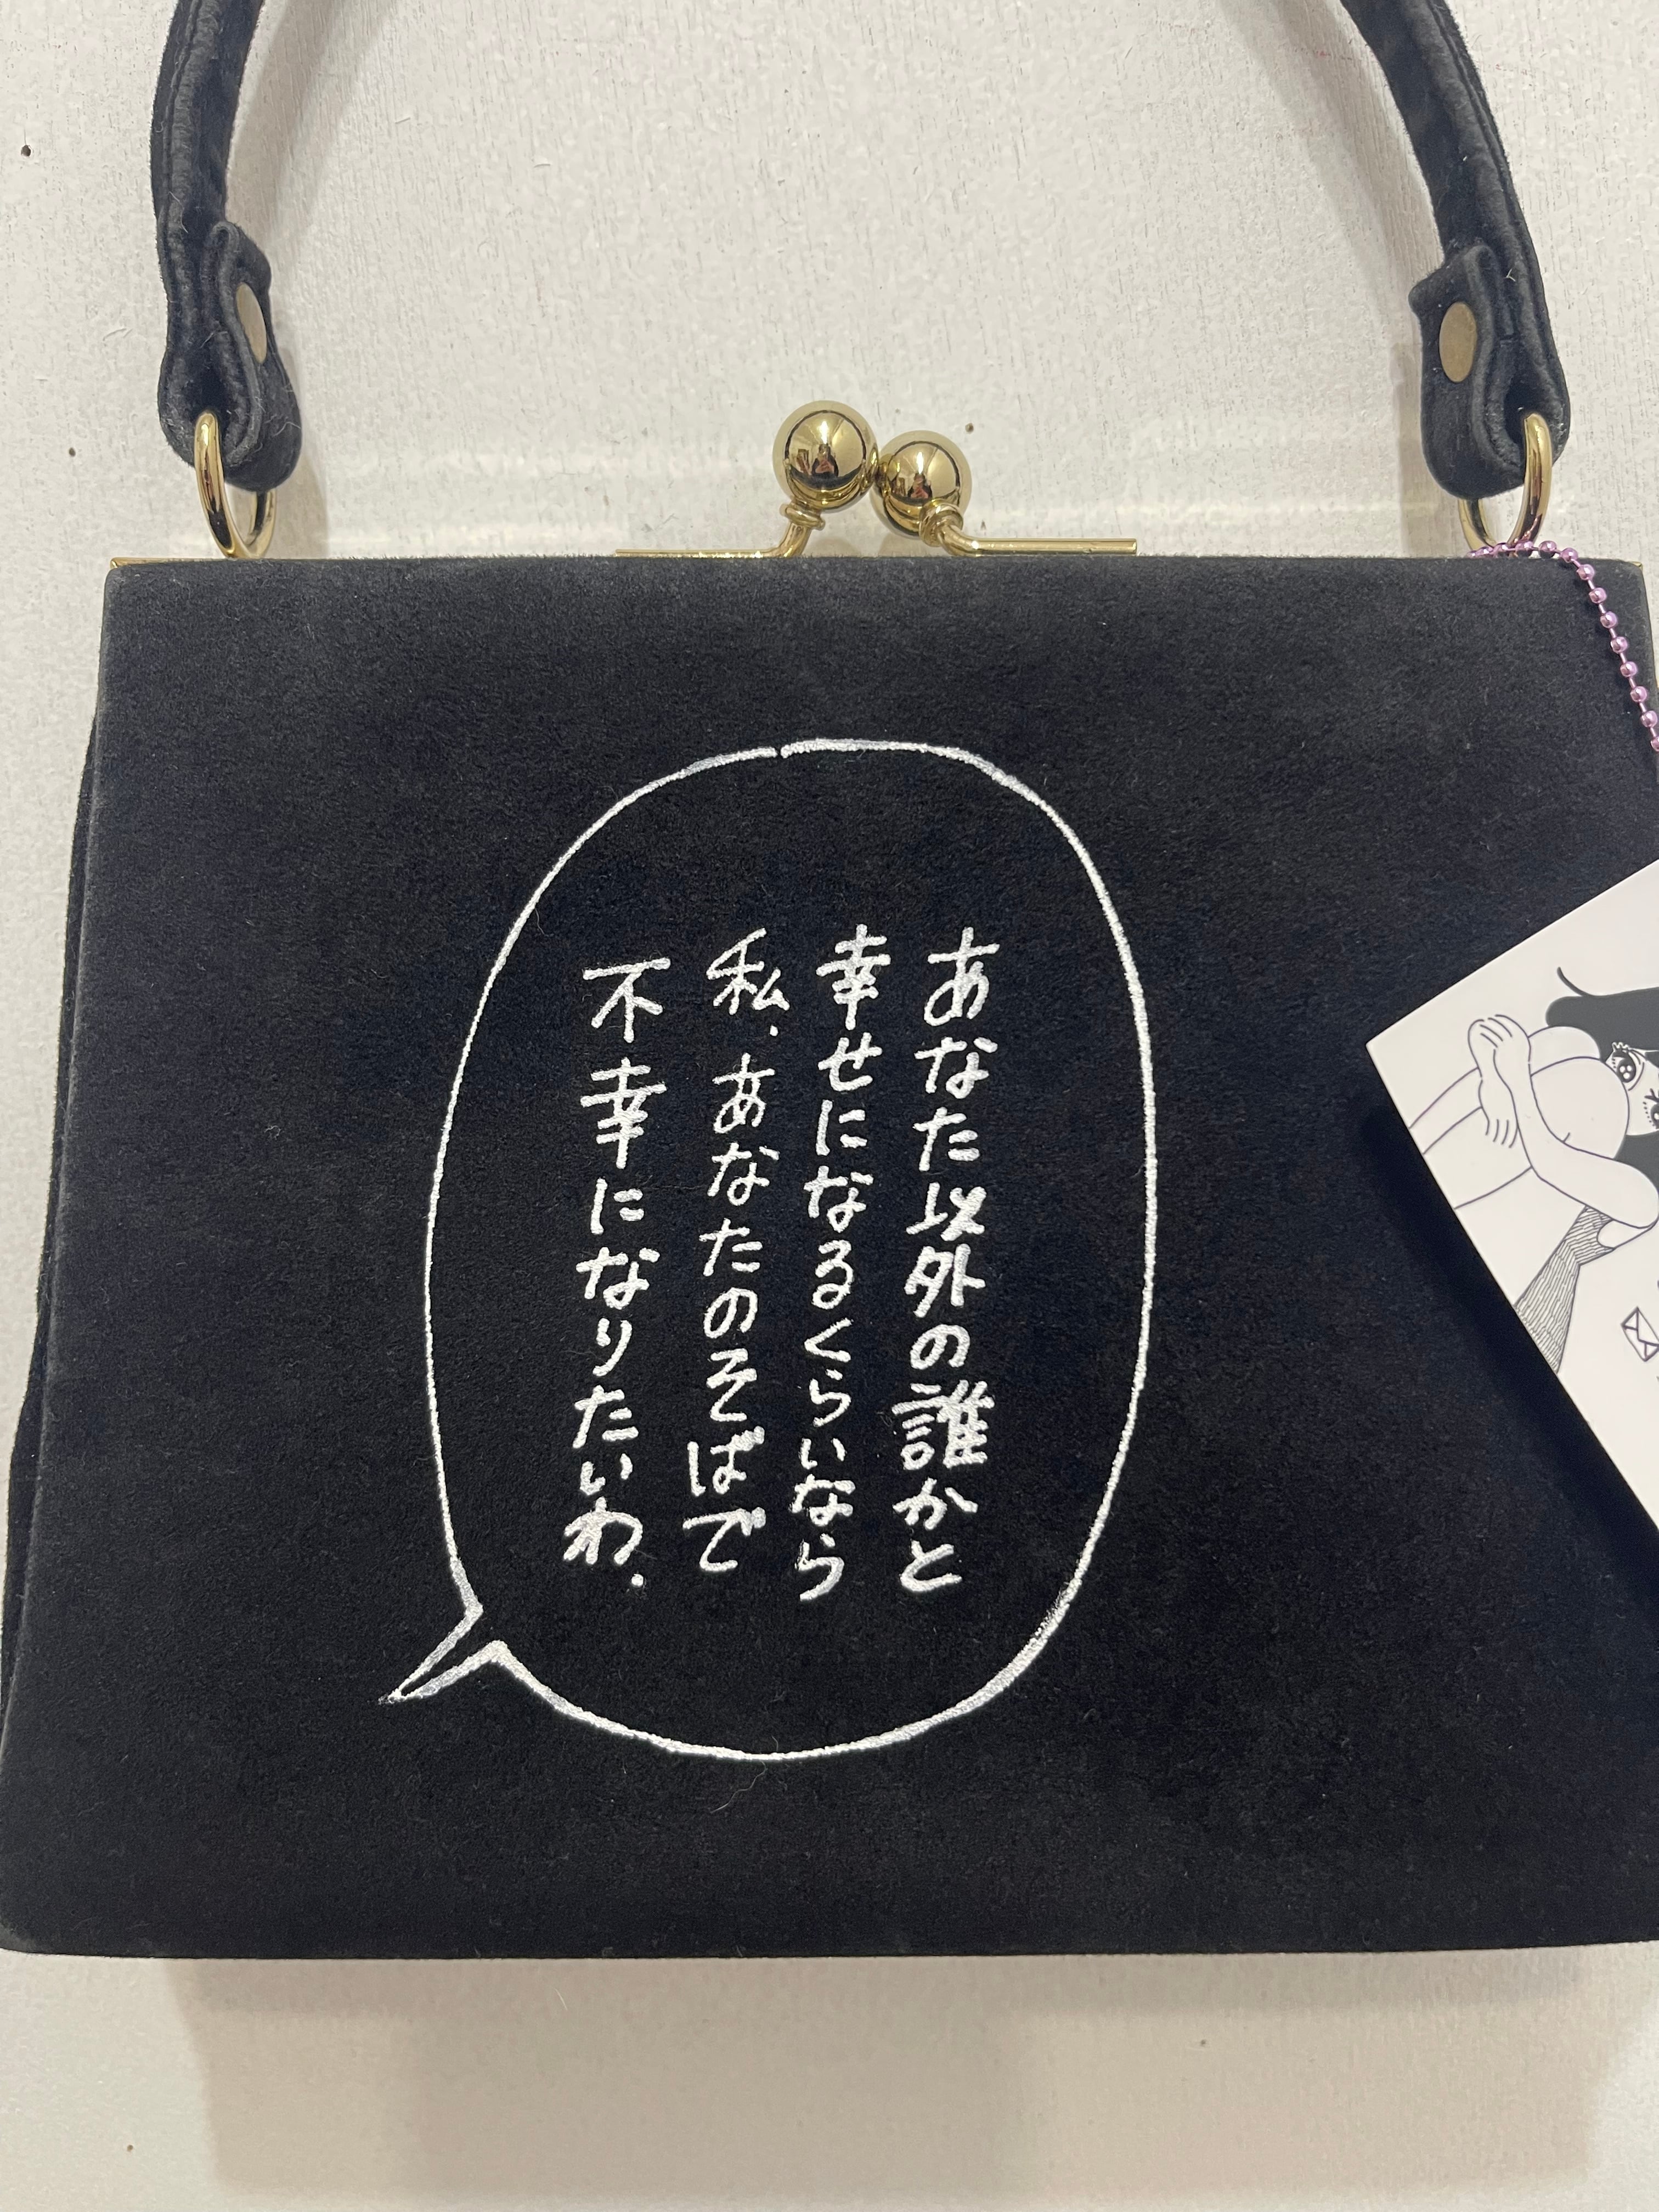 あなた以外の誰かと
幸せになるくらいなら
私、あなたのそばで
不幸になりたいわ.